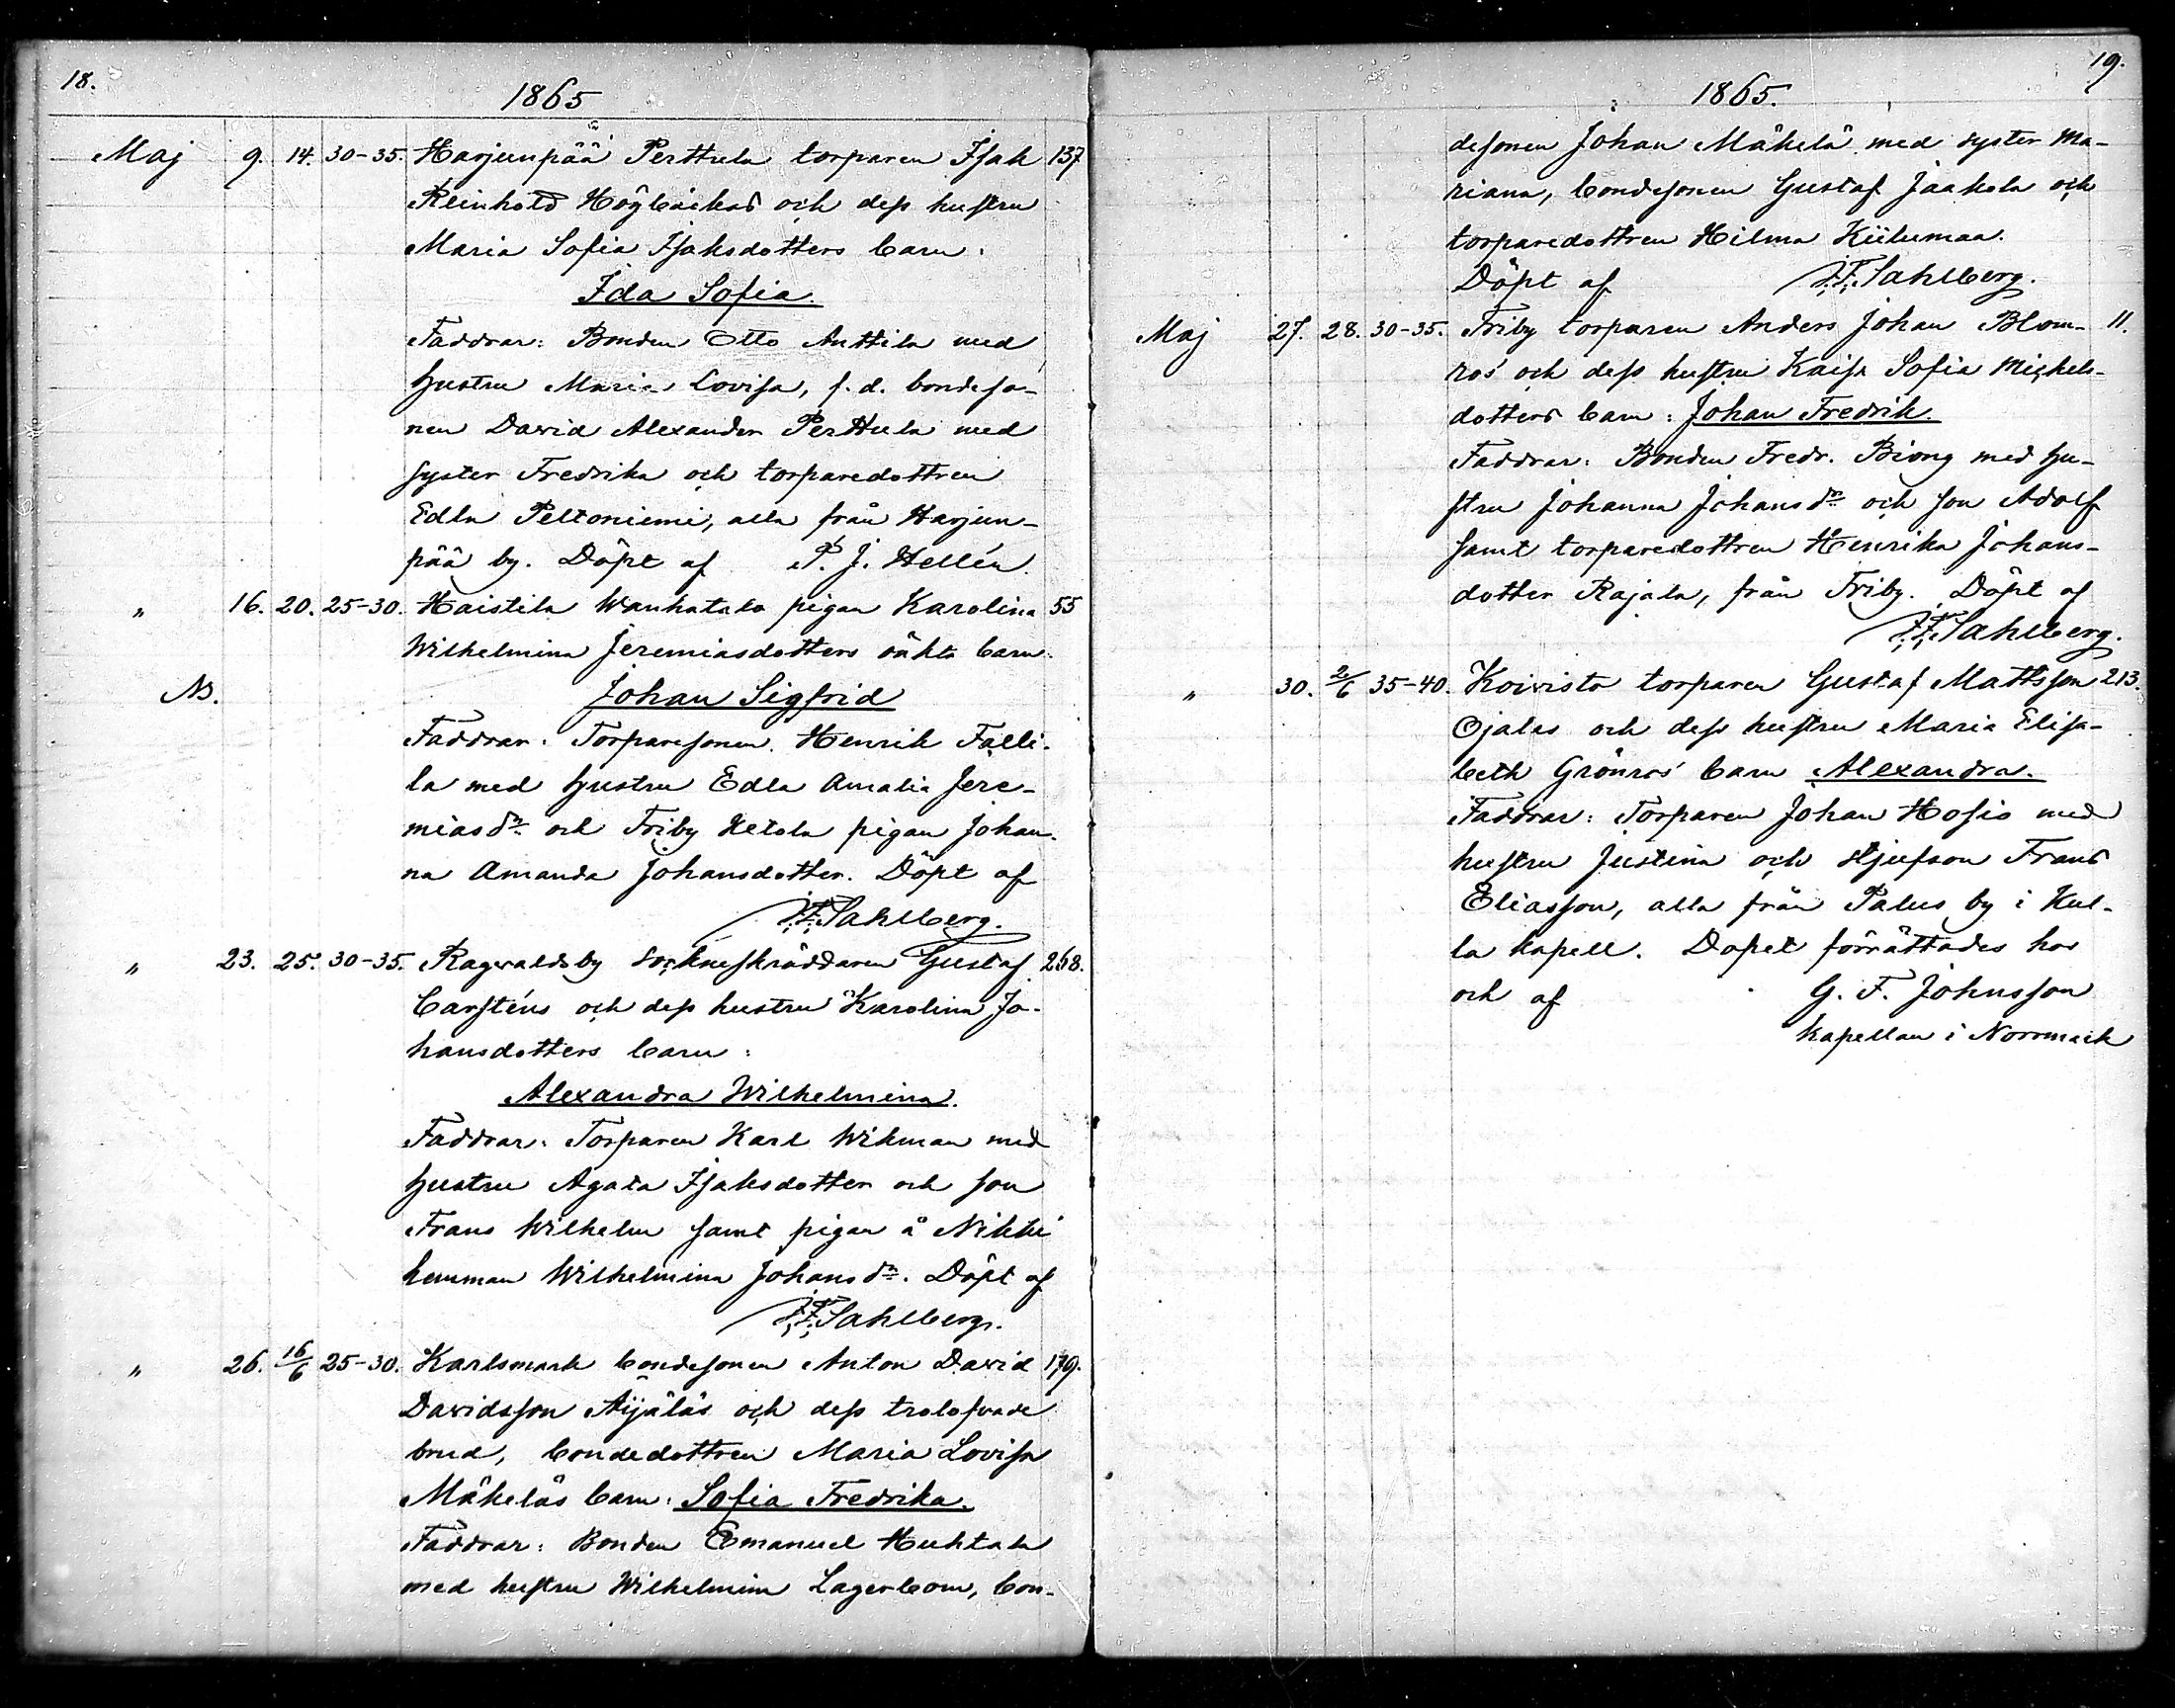 18.
1865
Maj 9. 14. 30-35. Harjunpää Perttula torparen Isak 137
Reinhold Högbackas och dess hustru
Maria Sofia Isaksdotters barn:
Ida Sofia.
Faddrar: Bonden Otto Anttila med
hustru Maria Lovisa, f.d. bondeso-
nen David Alexander Perttula med
syster Fredrika och torparedottren
Edla Peltoniemi, alla från Harjun-
pää by. Döpt af P. J. Hellén.
" 16. 20. 25-30. Haistila Wanhatalo pigan Karolina 55
Wilhelmina Jeremiasdotters oäkta barn:
NB. Johan Sigfrid
Faddrar: Torparesonen Henrik Falli-
la med hustru Edla Amalia Jere-
miasdr och Friby Ketola pigan Johan-
na Amanda Johansdotter. Döpt af
F. F. Sahlberg.
" 23. 25. 30-35. Ragvaldsby sockneskräddaren Gustaf 268.
Carsténs och dess hustru Karolina Jo-
hansdotters barn:
Alexandra Wilhelmina.
Faddrar: Torparen Karl Wikman med
hustru Agata Isaksdotter och son
Frans Wilhelm samt pigan å Nikki
hemman Wilhelmina Johansdr. Döpt af
F. F. Sahlberg.
" 26. 16/6 25-30. Karlsmark bondesonen Anton David 179.
Davidsson Äijäläs och dess trolofvade
brud, bondedottren Maria Lovisa
Mäkeläs barn: Sofia Fredrika.
Faddrar: Bonden Emanuel Huhtala
med hustru Wilhelmina Lagerbom, bon-
19.
1865.
desonen Johan Mäkelä med syster Ma-
riana, bondesonen Gustaf Jaakola och
torparedottren Hilma Kiilumaa.
Döpt af F. F. Sahlberg.
Maj 27. 28. 30-35. Friby torparen Anders Johan Blom- 11.
ros' och dess hustru Kaisa Sofia Michels-
dotters barn: Johan Fredrik.
Faddrar: Bonden Fredr. Biong med hu-
stru Johanna Johansdr och son Adolf
samt torparedottren Henrika Johans-
dotter Rajala, från Friby. Döpt af
F. F. Sahlberg.
" 30. 2/6 35-40. Koivisto torparen Gustaf Mattsson 213.
Ojalas och dess hustru Maria Elisa-
beth Grönros' barn Alexandra.
Faddrar: Torparen Johan Hosio med
hustru Justina och stjufson Frans
Eliasson, alla från Palus by i Kul-
la kapell. Dopet förrättades hos
och af G. F. Johnsson
Kapellan i Norrmark